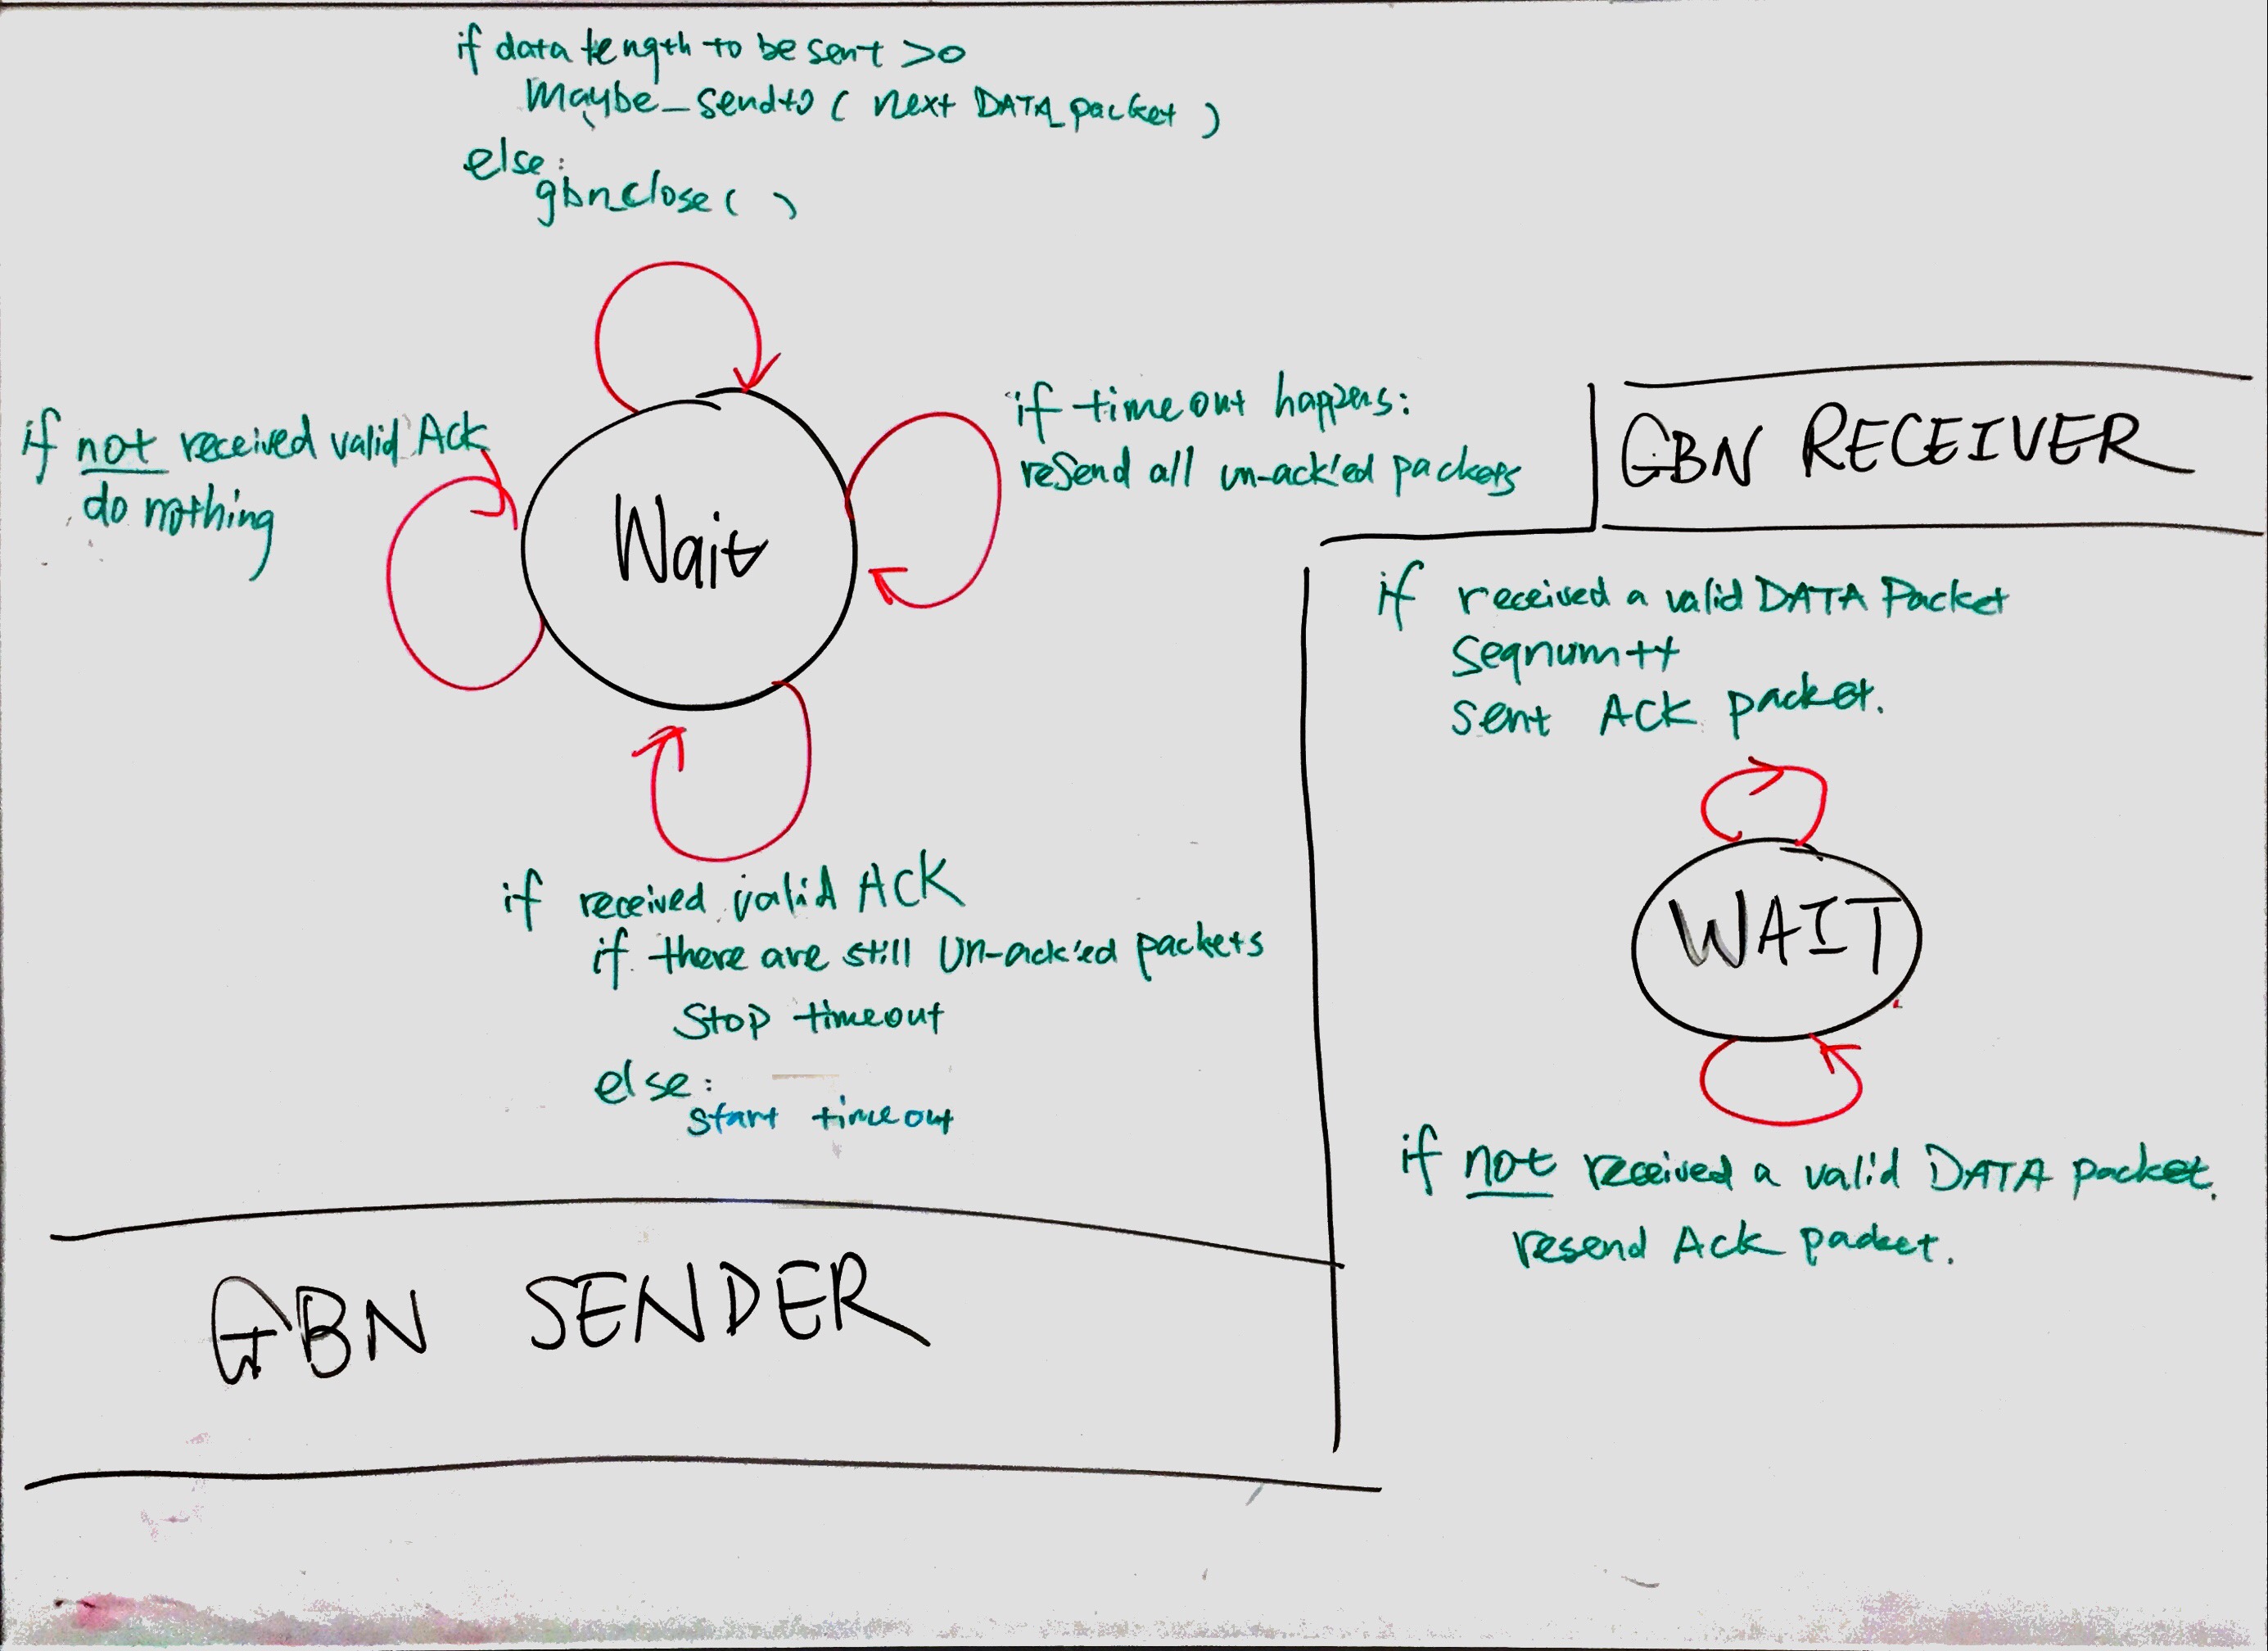 if data length to be sent >0
maybe_sendto ( next DATA packet )
else:
gbn_close( )
if not received valid Ack
do nothing
Wait
if timeout happens:
resend all un-ack'ed packets
if received valid ACK
if there are still Un-ack'ed packets
Stop timeout
else:
start timeout
GBN SENDER
GBN RECEIVER
if received a valid DATA Packet
Seqnum++
sent ACK packet.
WAIT
if not received a valid DATA packet.
resend Ack packet.